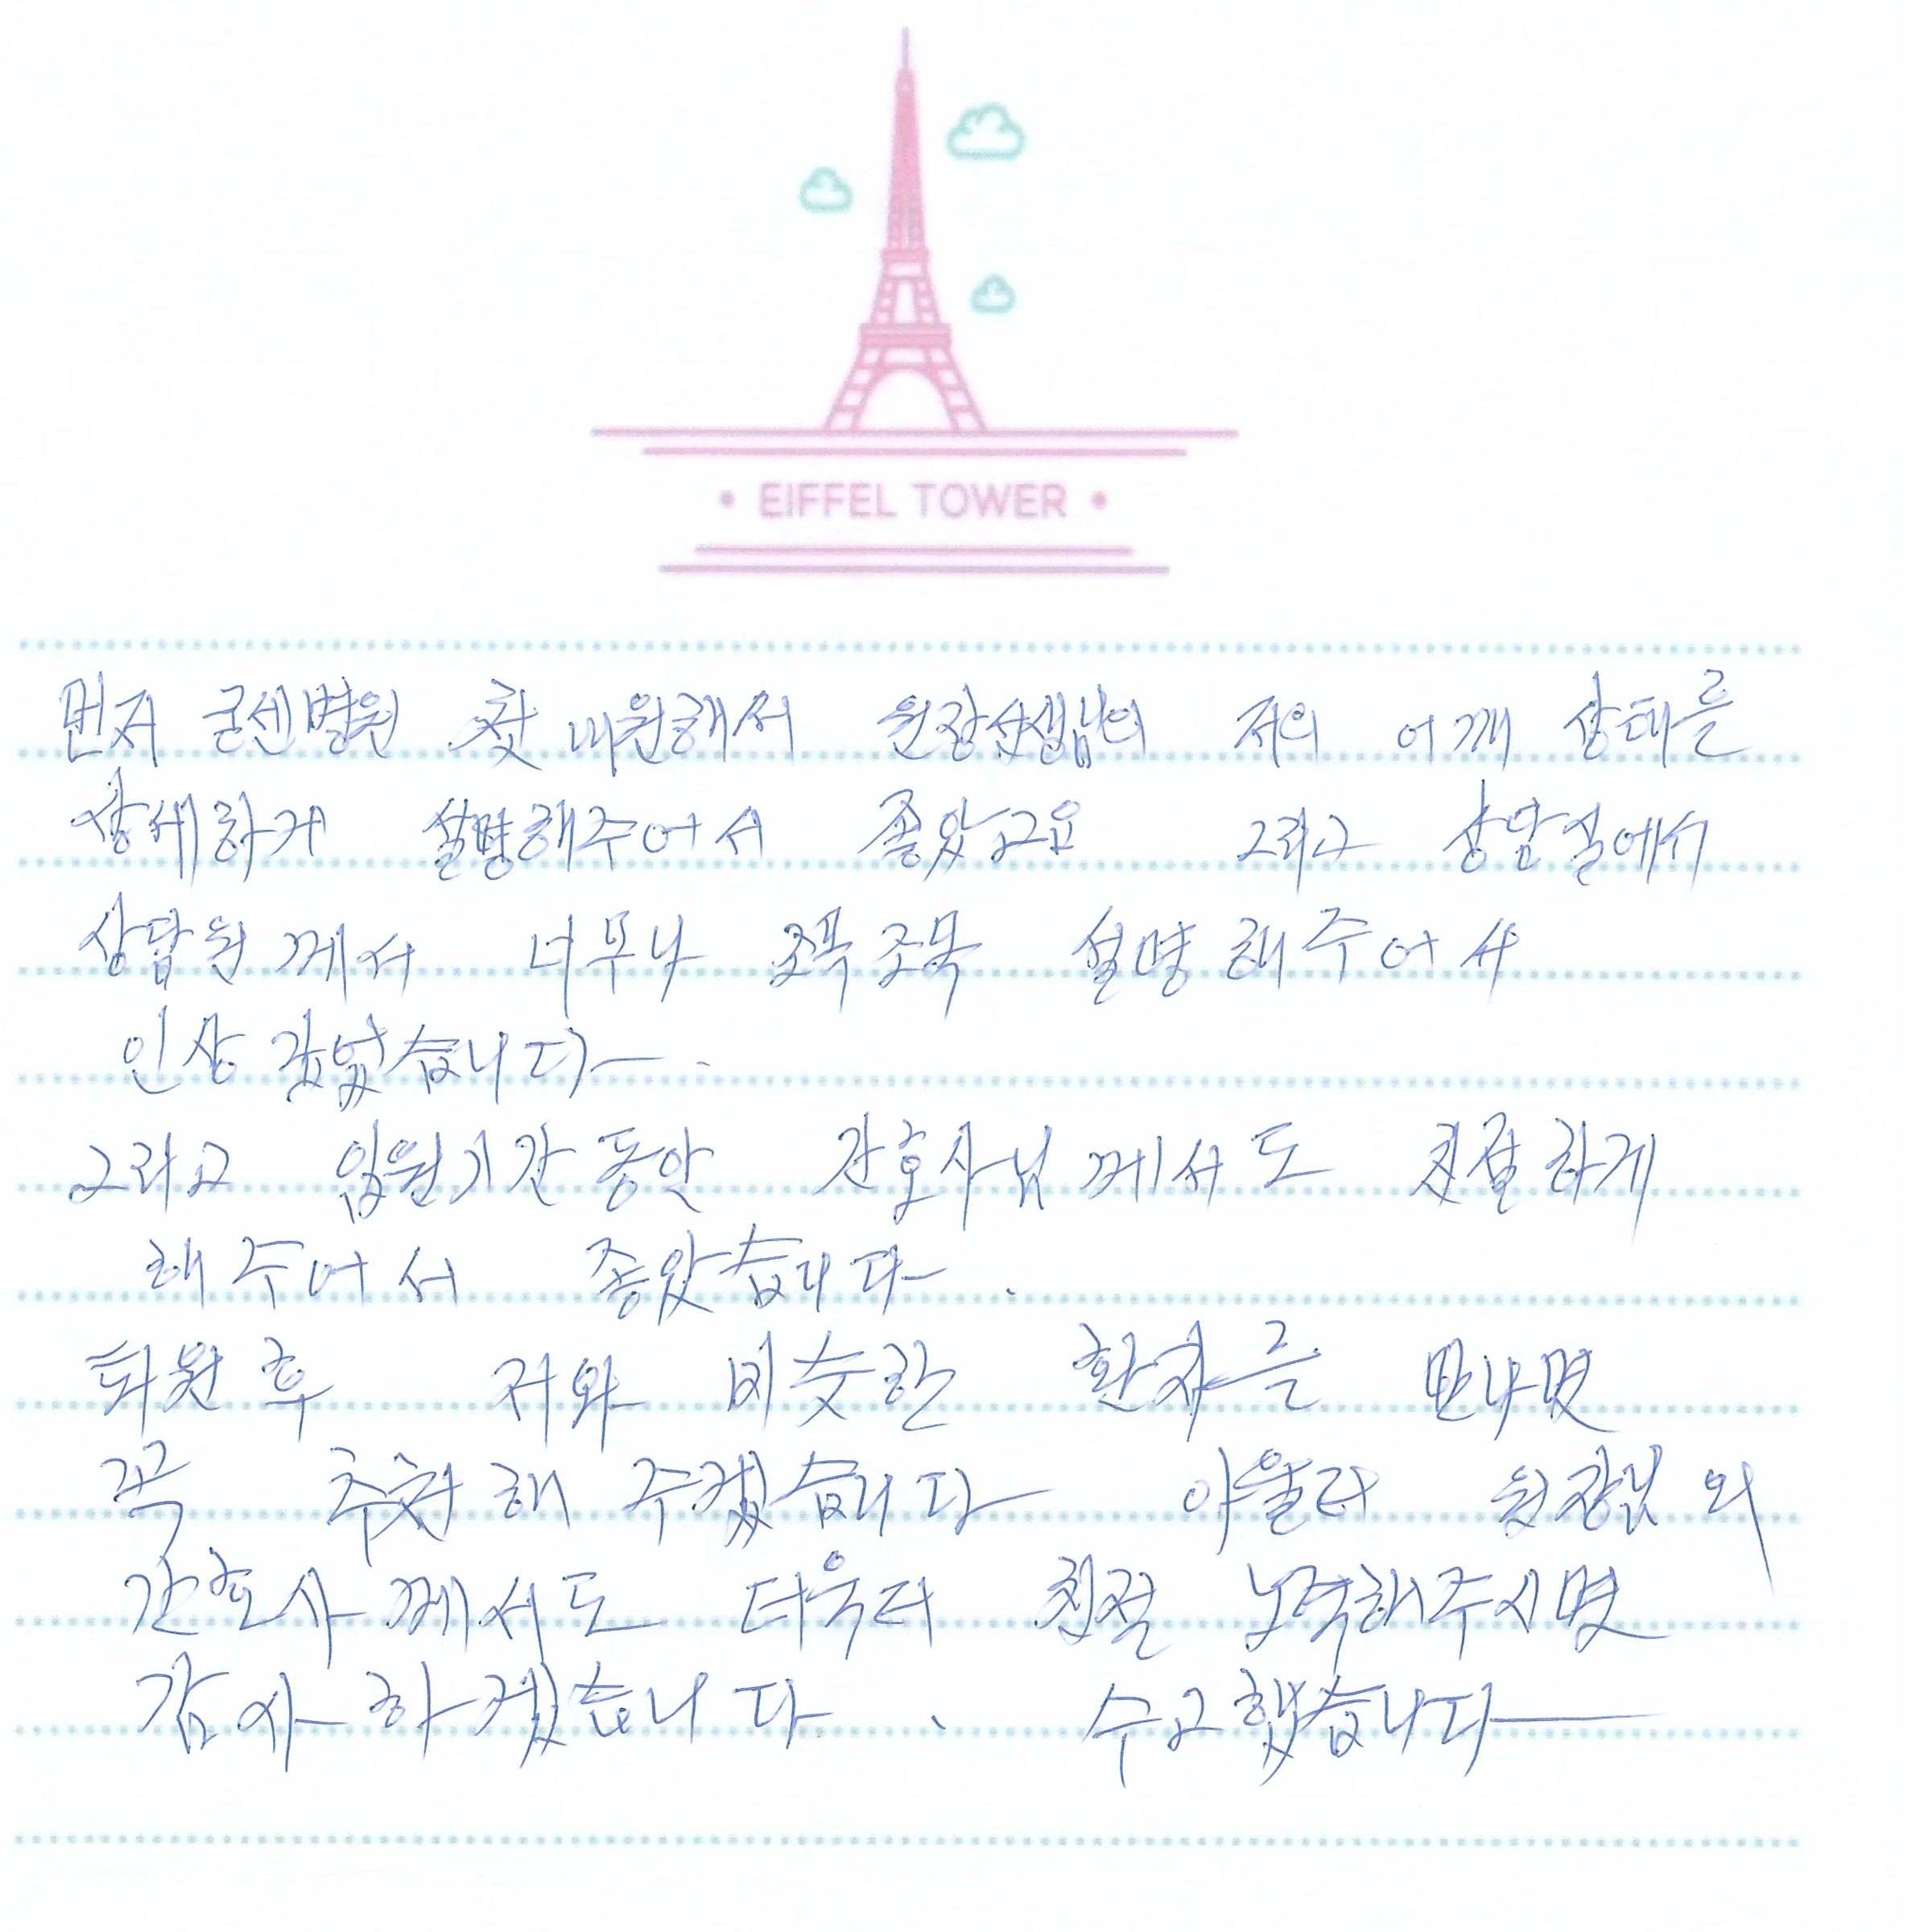 EIFFEL TOWER
먼저 굳센병원 첫 내원해서 원장선생님의 저의 어깨 상태를
상세하게 설명해주어서 좋았고요 그리고 상담실에서
상담원께서 너무나 조목조목 설명해주어서
인상 깊었습니다.
그리고 입원기간동안 간호사님께서도 친절하게
해주어서 좋았습니다.
퇴원후 저와 비슷한 환자를 만나면
꼭 추천해 주겠습니다 아울러 원장님와
간호사께서도 더욱더 친절 노력해주시면
감사하겠습니다. 수고했습니다